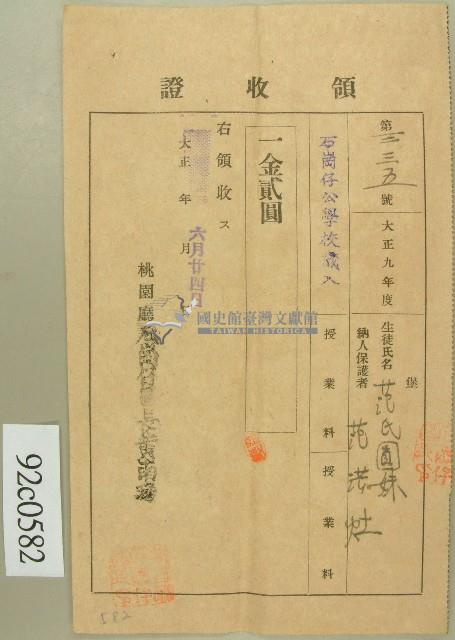 領收證
第二三五號
大正九年度
堡
生徒氏名 范氏圓妹
納人保護者 范洪灶
石崗仔公學校歲入
授業料
授業料
一金貳圓
右領收ス
大正 年 月
六月廿四日
桃園廳
國史館臺灣文獻館
TAIWAN HISTORICA
92c0582
582